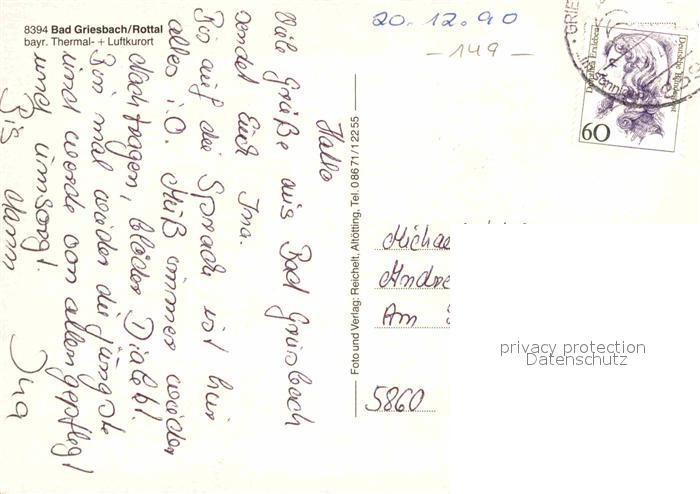 8394 Bad Griesbach/Rottal
bayr. Thermal- + Luftkurort
20.12.90
- 149 -
60
Hallo
Viele Grüße aus Bad Griesbach
sendet Euch Ina.
Bis auf die Sprache ist hier
alles i.O. Muß immer wieder
Nachfragen, blöder Dialekt.
Bin mal wieder die jüngste
und werde von allen gepflegt
und umsorgt.
Bis dann Ina
Foto und Verlag: Reichelt, Altötting, Tel. 08671/12255
Michae
Andre
Am
5860
privacy protection
Datenschutz